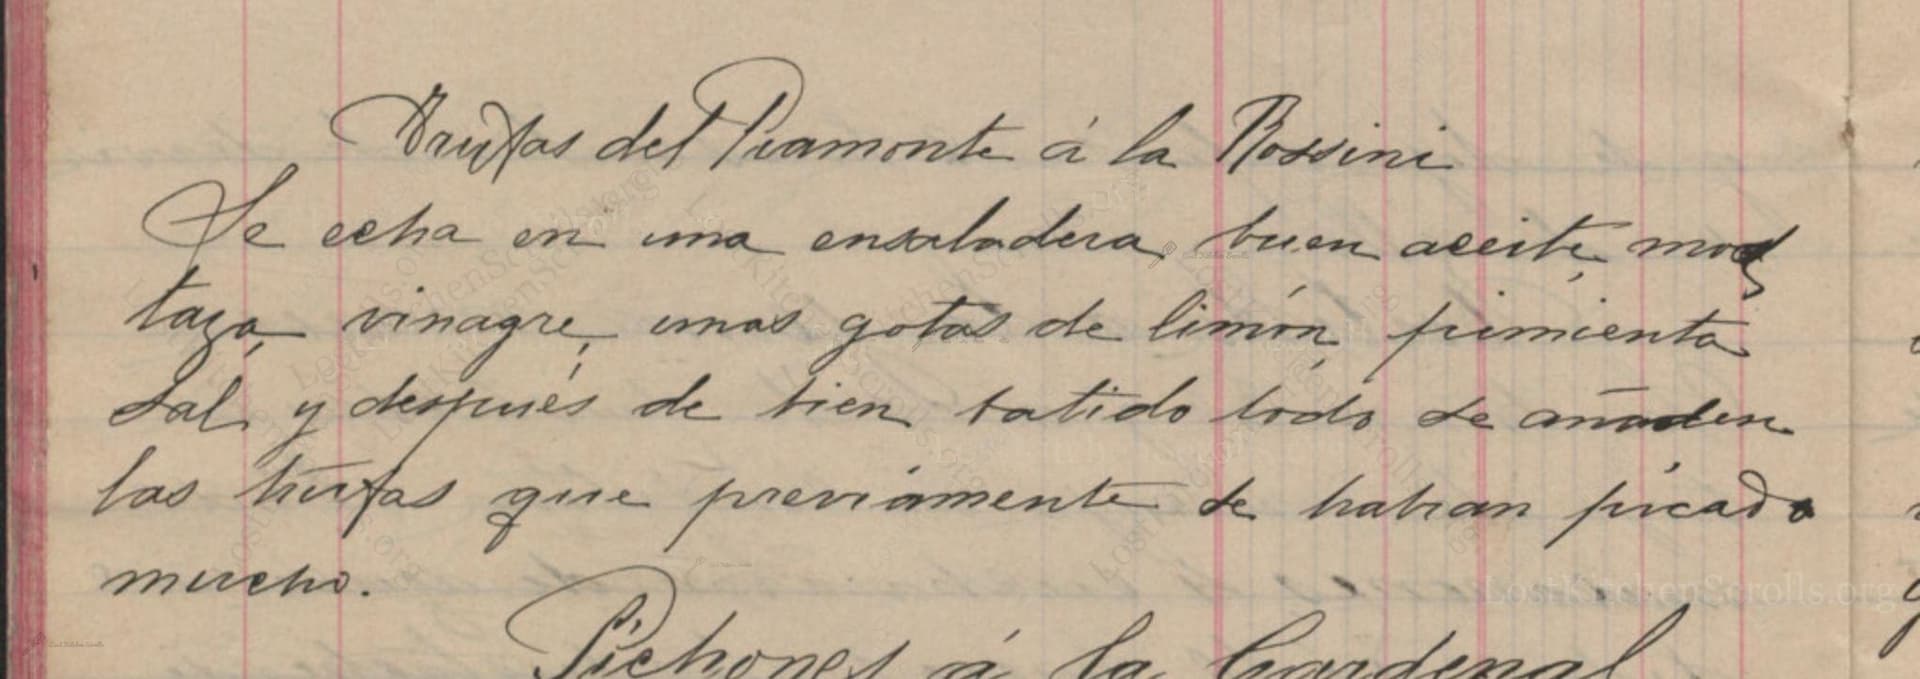 Trufas del Piamonte á la Rossini
Se echa en una ensaladera buen aceite, mos
taza, vinagre, unas gotas de limón, pimienta
sal, y después de bien batido todo se añaden
las trufas que previamente se habran picado
mucho.
LostKitchenScrolls.org
Pichones á la Cardenal